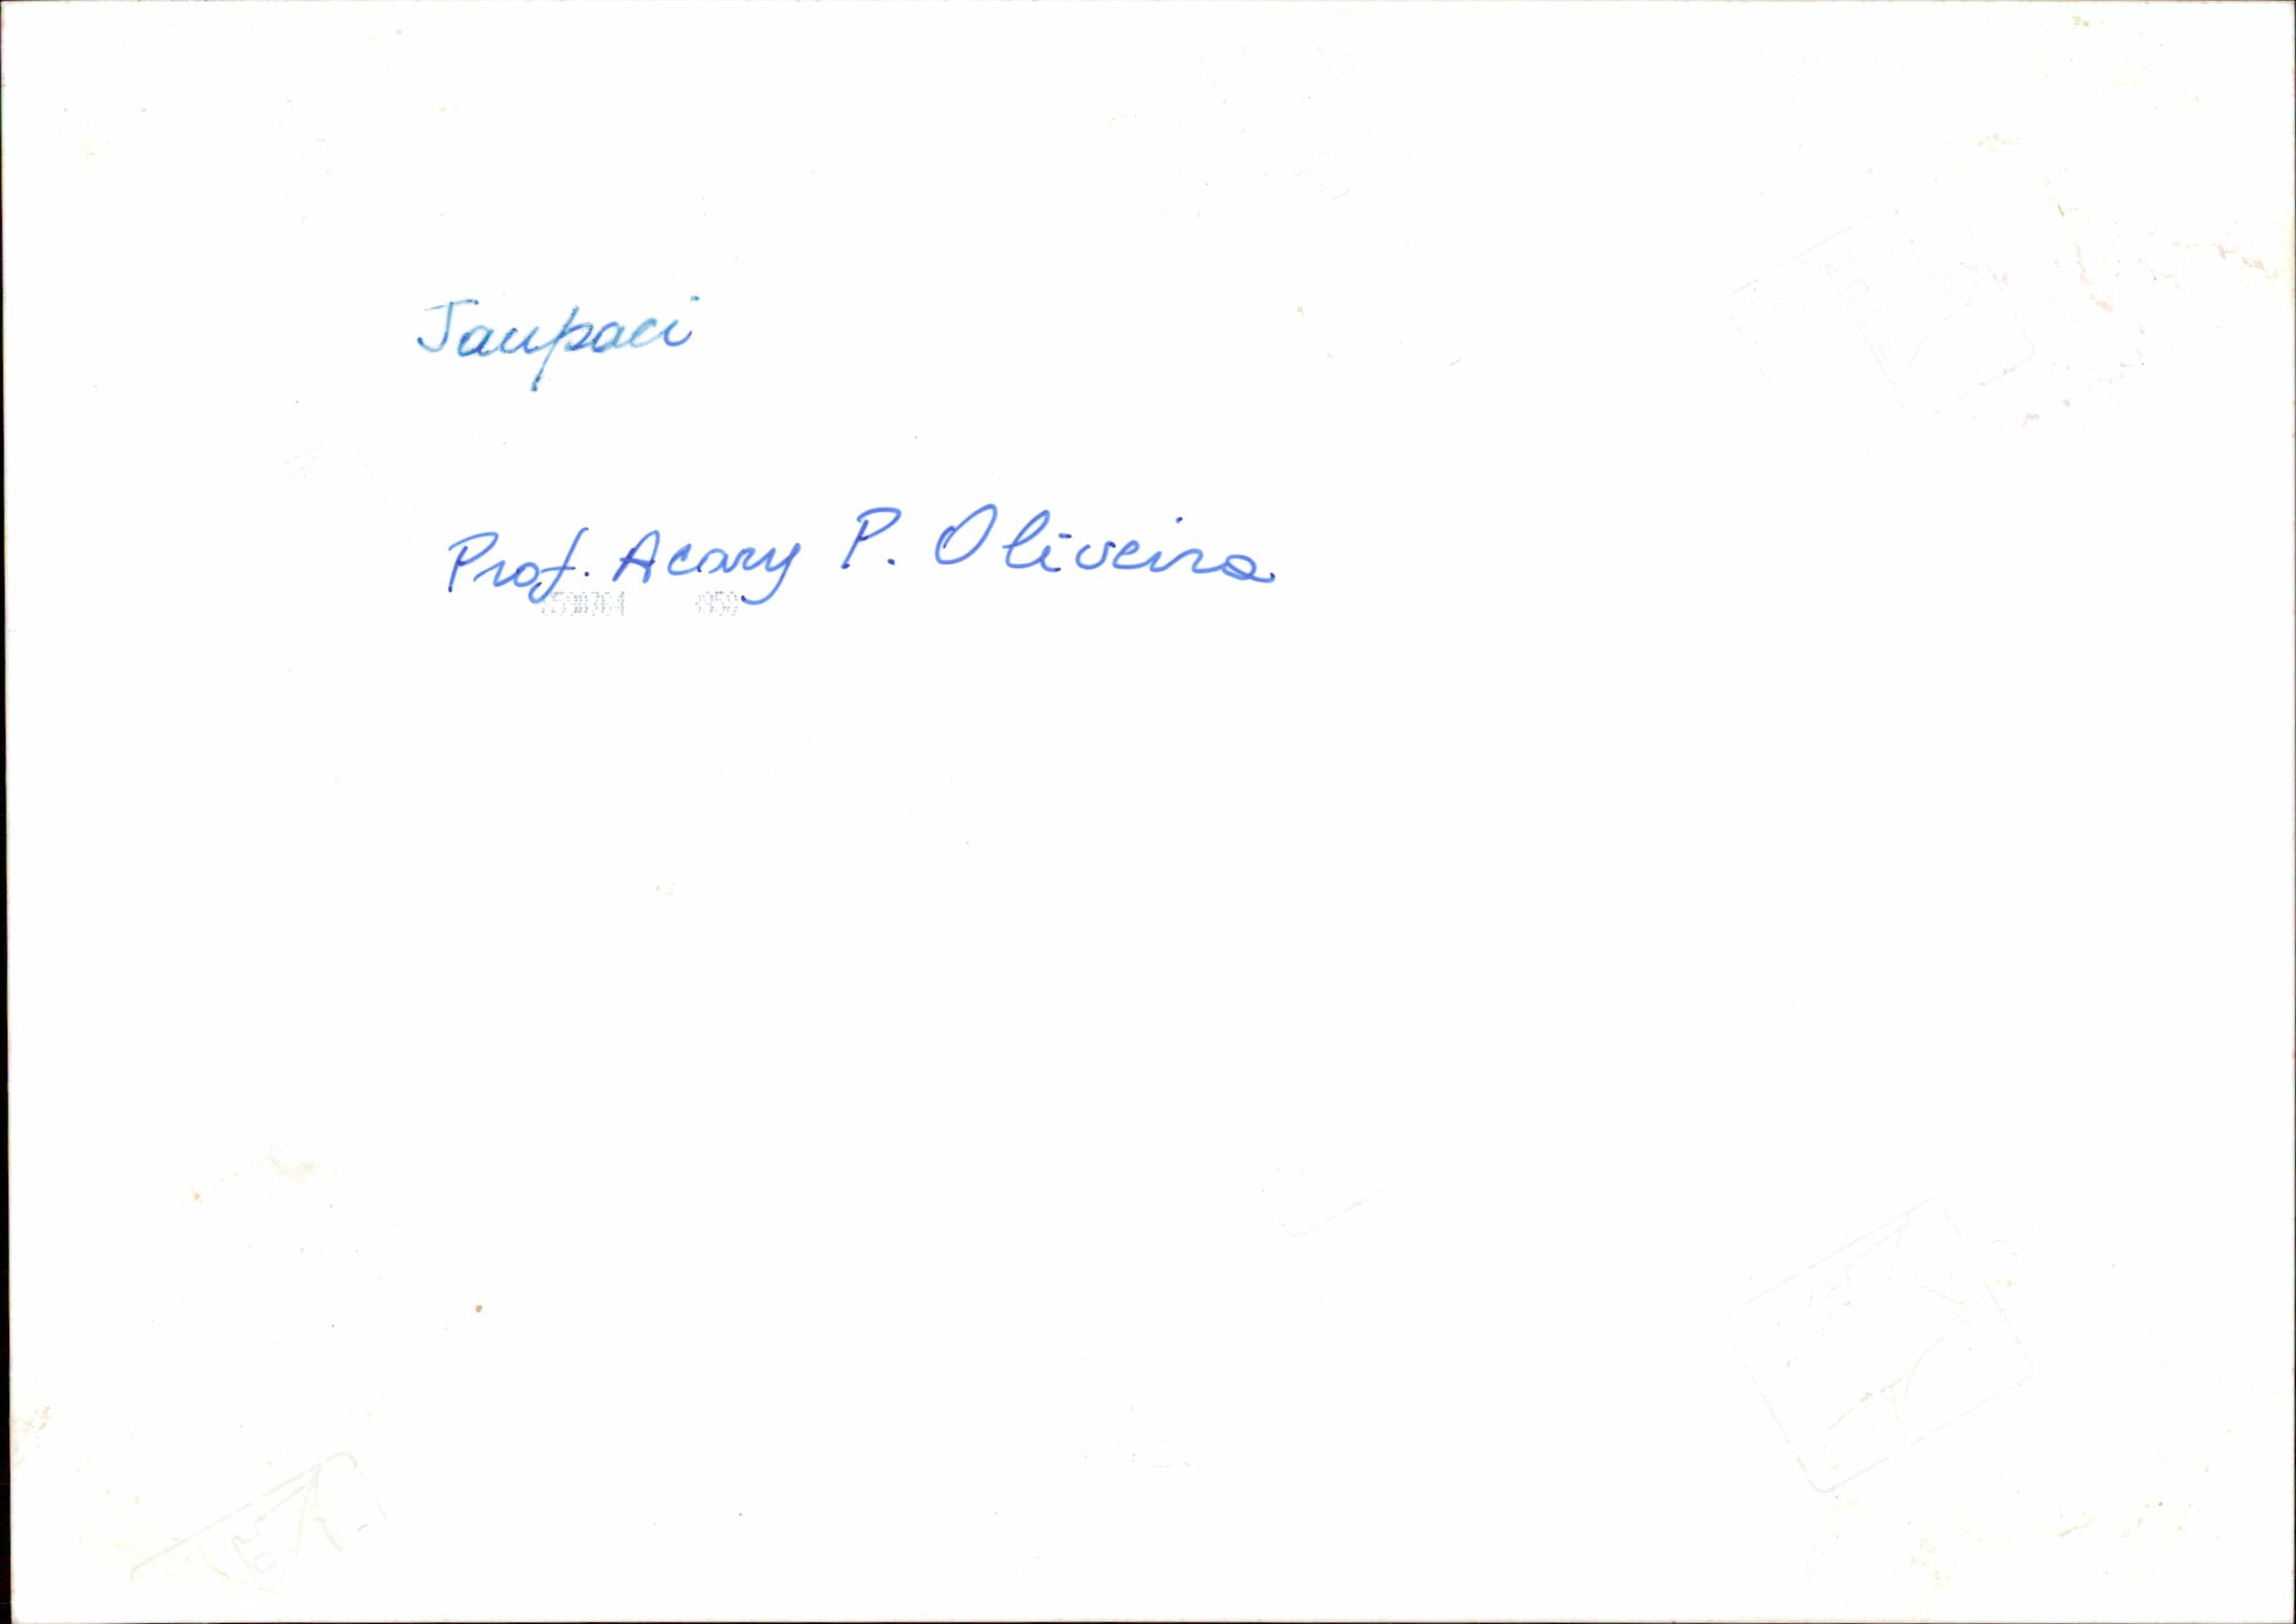 Jaupaci
Prof. Acary P. Oliveira